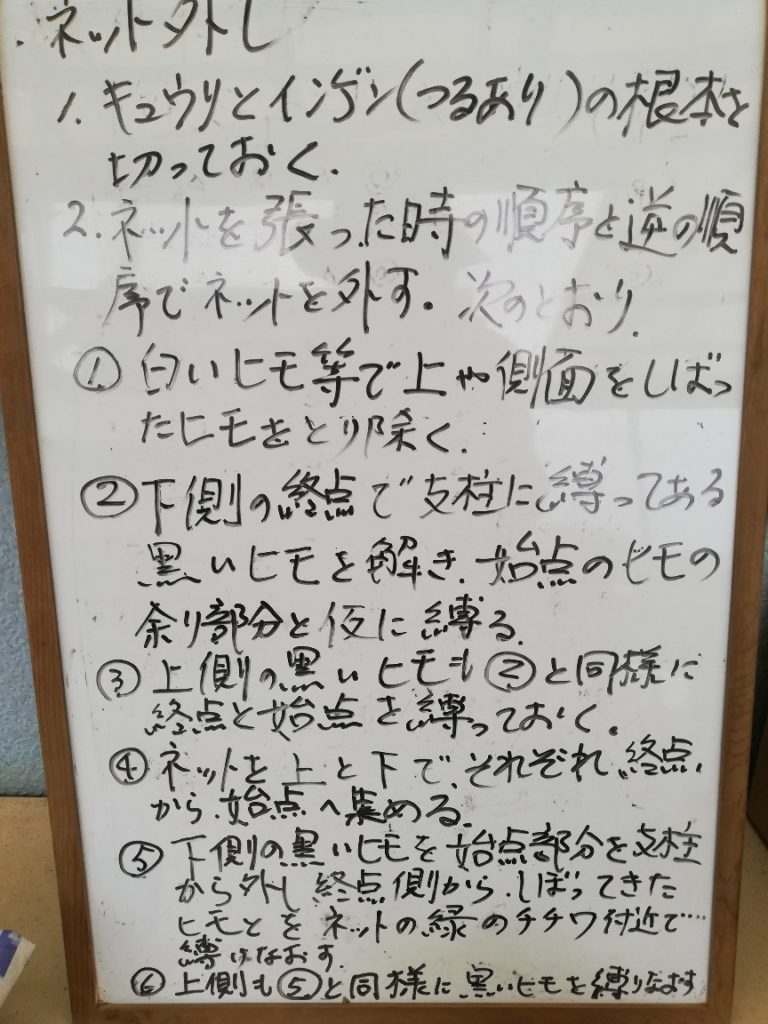 ・ネット外し
1. キュウリとインゲン(つるあり)の根本を
切っておく.
2. ネットを張った時の順序と逆の順
序でネットを外す。次のとおり.
① 白いヒモ等で上や側面をしばっ
たヒモをとり除く.
② 下側の終点で支柱に縛ってある
黒いヒモを解き.始点のヒモの
余り部分と仮に縛る.
③ 上側の黒いヒモも②と同様に
終点と始点を縛っておく。
④ ネットを上と下で.それぞれ.終点
から.始点へ集める.
⑤ 下側の黒いヒモを始点部分を支柱
から外し終点側から.しばってきた
ヒモとをネットの縁のチチワ付近で…
縛りなおす.
⑥ 上側も⑤と同様に黒いヒモを縛りなおす